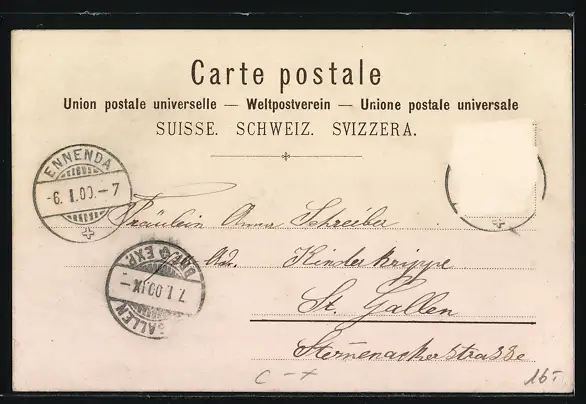 Carte postale
Union postale universelle — Weltpostverein — Unione postale universale
SUISSE. SCHWEIZ. SVIZZERA.
ENNENDA
-6. I.00.-7
Fräulein Anna Schreiber
Ad. Kinderkrippe
St. Gallen
Sternenackerstrasse
GALLEN
7. I. 00. IX-
BRF. EXP.
16.-